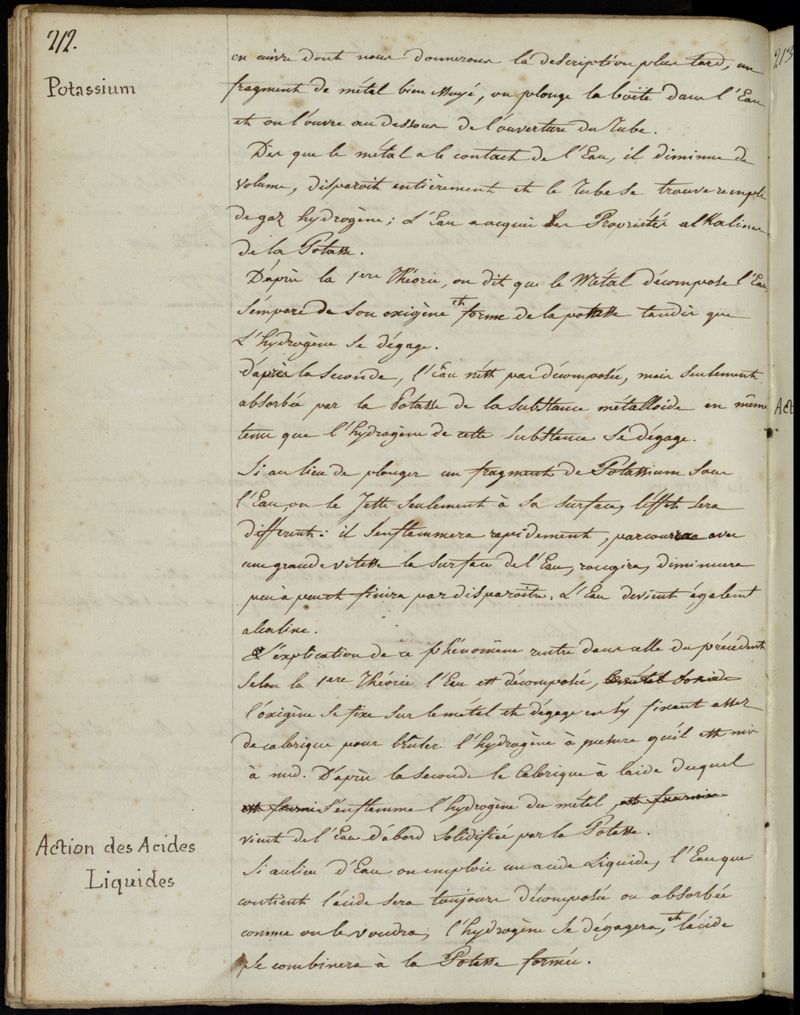 212.
Potassium
en cuivre dont nous donnerons la description plus tard, un
fragment de métal bien essuyé, on plonge la boite dans l'Eau
et on l'ouvre au dessous de l'ouverture du Tube.
Dès que le métal a le contact de l'Eau, il diminue de
volume, disparoit entièrement et le Tube se trouve rempli
de gaz hydrogène; L'Eau a acquis les Propriétés alkalines
de la Potasse.
D'après la 1ere Théorie, on dit que le Métal décompose l'Eau,
s'empare de son oxigène et forme de la potasse tandis que
L'hydrogène se dégage.
D'après la seconde, l'Eau n'est pas décomposée, mais seulement
absorbée par la Potasse de la substance métalloïde en même
tems que l'hydrogène de cette substance se dégage.
Si au lieu de plonger un fragment de Potassium sous
l'Eau, on le Jette seulement à sa surface, l'effet sera
différent: il s'enflammera rapidement, parcourra avec
une grande vitesse la surface de l'Eau, rougira, diminuera
peu à peu et finira par disparoitre. L'Eau devient égalemt
alcaline.
L'explication de ce phénomène rentre dans celle du précédent
Selon la 1ere Théorie l'Eau est décomposée,
l'oxigène se fixe sur le métal et dégage en s'y fixant assez
de calorique pour bruler l'hydrogène à mesure qu'il est mis
à nud. D'après la seconde le Calorique à l'aide duquel
s'enflamme l'hydrogène du métal
vient de l'Eau d'abord solidifiée par la Potasse.
Action des Acides
Liquides
Si au lieu d'Eau on emploie un acide Liquide, l'Eau que
contient l'acide sera toujours décomposée ou absorbée
comme on le voudra, l'hydrogène se dégagera, et l'acide
se combinera à la Potasse formée.
213
Act